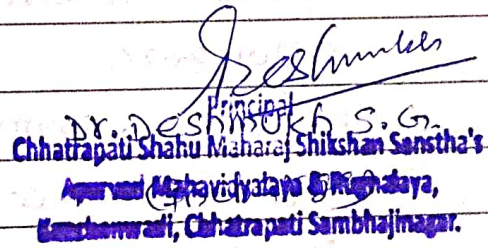 Deshmukh
Principal
Dr. Deshmukh S. G.
Chhatrapati Shahu Maharaj Shikshan Sanstha's
Ayurved Mahavidyalaya & Rugnalaya,
Kanchanwadi, Chhatrapati Sambhajinagar.